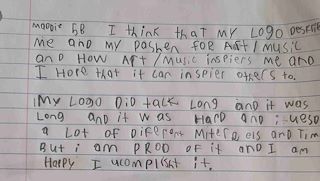 maddie 5B I think that my Logo Describe
me and my pashen for Art/music
and How Art/music inspiers me and
I Hope that it can inspier others to.
My Logo Did talk Long and it was
Long and it was Hard and i uesd
a Lot of Diferent Mitereels and Tim
But i am PROD of it and I am
Happy I ucomplisht it.